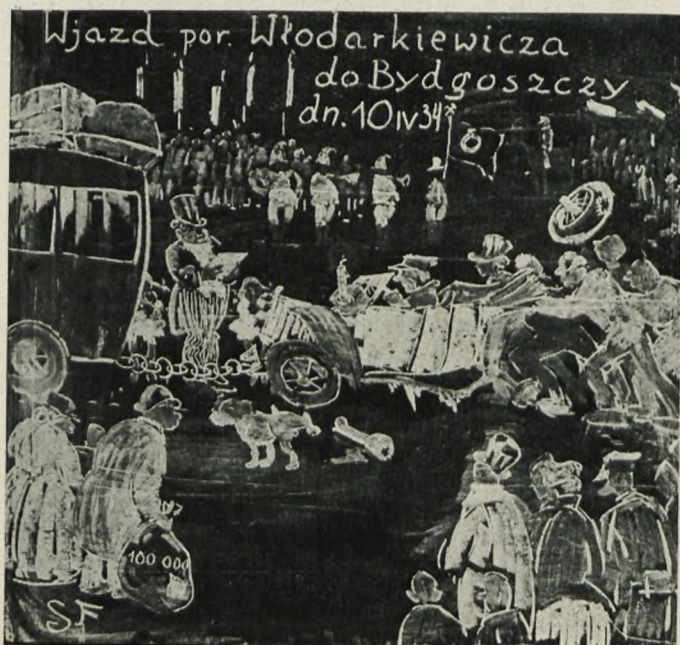 Wjazd por. Włodarkiewicza
do Bydgoszczy
dn. 10 IV 34
100 000
SF